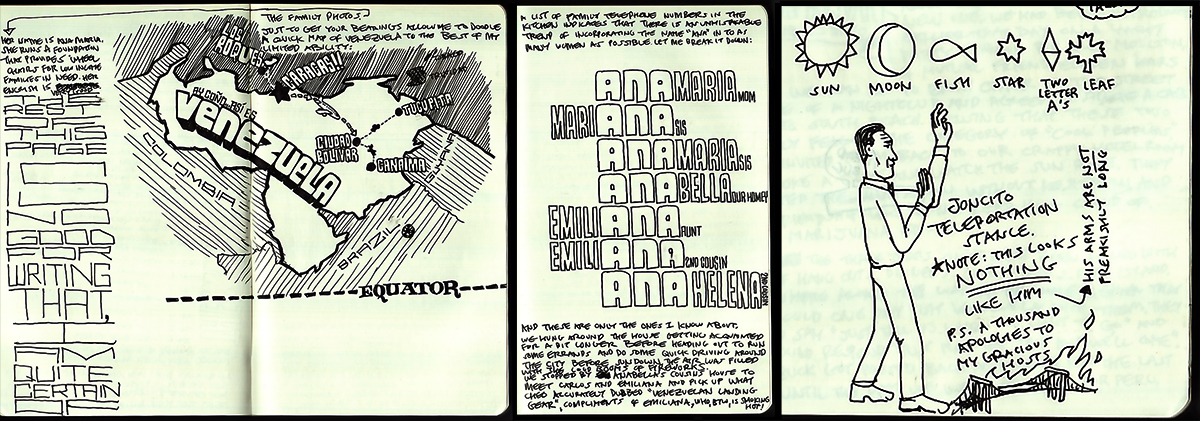 THE FAMILY PHOTOS.
JUST TO GET YOUR BEARINGS ALLOW ME TO DOODLE
A QUICK MAP OF VENEZUELA TO THE BEST OF MY
LIMITED ABILITY:
HER NAME IS ANA MARIA.
SHE RUNS A FOUNDATION
THAT PROVIDES WHEEL
CHAIRS FOR LOW INCOME
FAMILIES IN NEED. HER
ENGLISH IS
REST
OF
THIS
PAGE
IS
NO
GOOD
FOR
WRITING
THAT,
I
AM
QUITE
CERTAIN
OF
LOS
ROQUES
CARACAS!!
TUCUPITA
CIUDAD
BOLIVAR
CANAIMA
VENEZUELA
COLOMBIA
BRAZIL
EQUATOR
A LIST OF FAMILY TELEPHONE NUMBERS IN THE
KITCHEN INDICATES THAT THERE IS AN UNMISTAKABLE
TREND OF INCORPORATING THE NAME "ANA" IN TO AS
MANY WOMEN AS POSSIBLE. LET ME BREAK IT DOWN:
ANAMARIA MOM
MARIANA SIS
ANAMARIA SIS
ANABELLA OUR HOMEY
EMILIANA AUNT
EMILIANA 2ND COUSIN
ANAHELENA 2ND COUSIN
AND THESE ARE ONLY THE ONES I KNOW ABOUT.
WE HUNG AROUND THE HOUSE GETTING ACQUAINTED
FOR A BIT LONGER BEFORE HEADING OUT TO RUN
SOME ERRANDS AND DO SOME QUICK DRIVING AROUND
THE CITY BEFORE SUNDOWN. THE AIR WAS FILLED
WITH THE LOUD BOOMS OF FIREWORKS.
WE STOPPED BY ANABELLA'S COUSINS' HOUSE TO
MEET CARLOS AND EMILIANA AND PICK UP WHAT
CHEO ACCURATELY DUBBED "VENEZUELAN LANDING
GEAR", COMPLIMENTS OF EMILIANA, WHO, BTW, IS SMOKING
HOT!
SUN
MOON
FISH
STAR
TWO
LETTER
A'S
LEAF
JONCITO
TELEPORTATION
STANCE.
*NOTE: THIS LOOKS
NOTHING
LIKE HIM
HIS ARMS ARE NOT
FREAKISHLY LONG
P.S. A THOUSAND
APOLOGIES TO
MY GRACIOUS
HOSTS